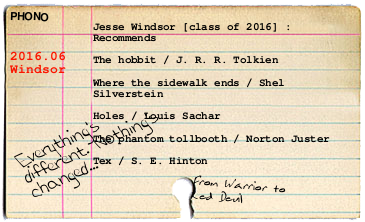 PHONO
2016.06
Windsor
Jesse Windsor [class of 2016] :
Recommends
The hobbit / J. R. R. Tolkien
Where the sidewalk ends / Shel
Silverstein
Holes / Louis Sachar
The phantom tollbooth / Norton Juster
Tex / S. E. Hinton
Everything's
different. Nothing's
changed...
From Warrior to
Red Devil